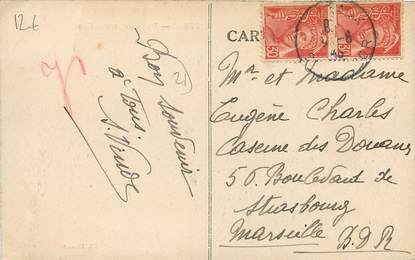 12€
21
Bon Souvenir
à Tous.
CAR
30
30
Mr et Madame
Eugène Charles
Caserne des Douanes
56 Boulevard de
Strasbourg
Marseille B.D.R